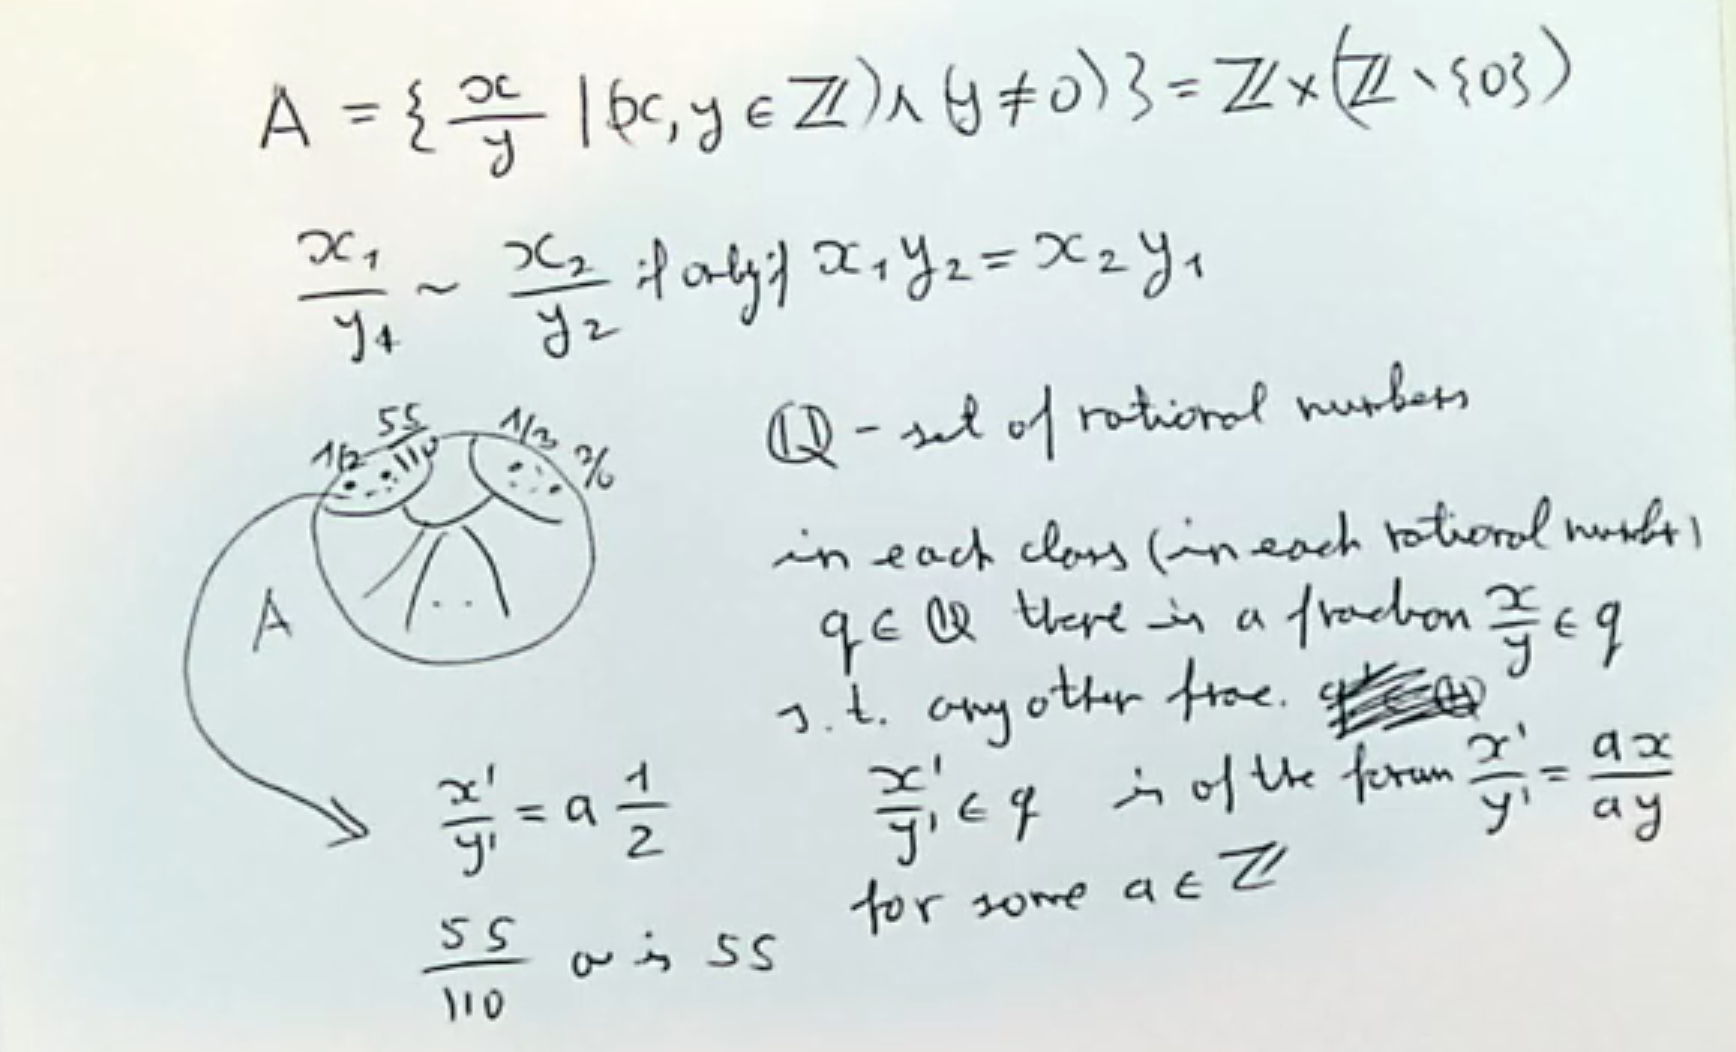 A = { x/y | (x, y ∈ ℤ) ∧ (y ≠ 0) } = ℤ × (ℤ \ {0})
x₁/y₁ ~ x₂/y₂ if only if x₁ y₂ = x₂ y₁
1/2 55/110 1/3 2/6
A
ℚ - set of rational numbers
in each class (in each rational number)
q ∈ ℚ there is a fraction x/y ∈ q
s.t. any other frac.
x'/y' ∈ q is of the form x'/y' = ax/ay
for some a ∈ ℤ
x'/y' = a 1/2
55/110 a is 55